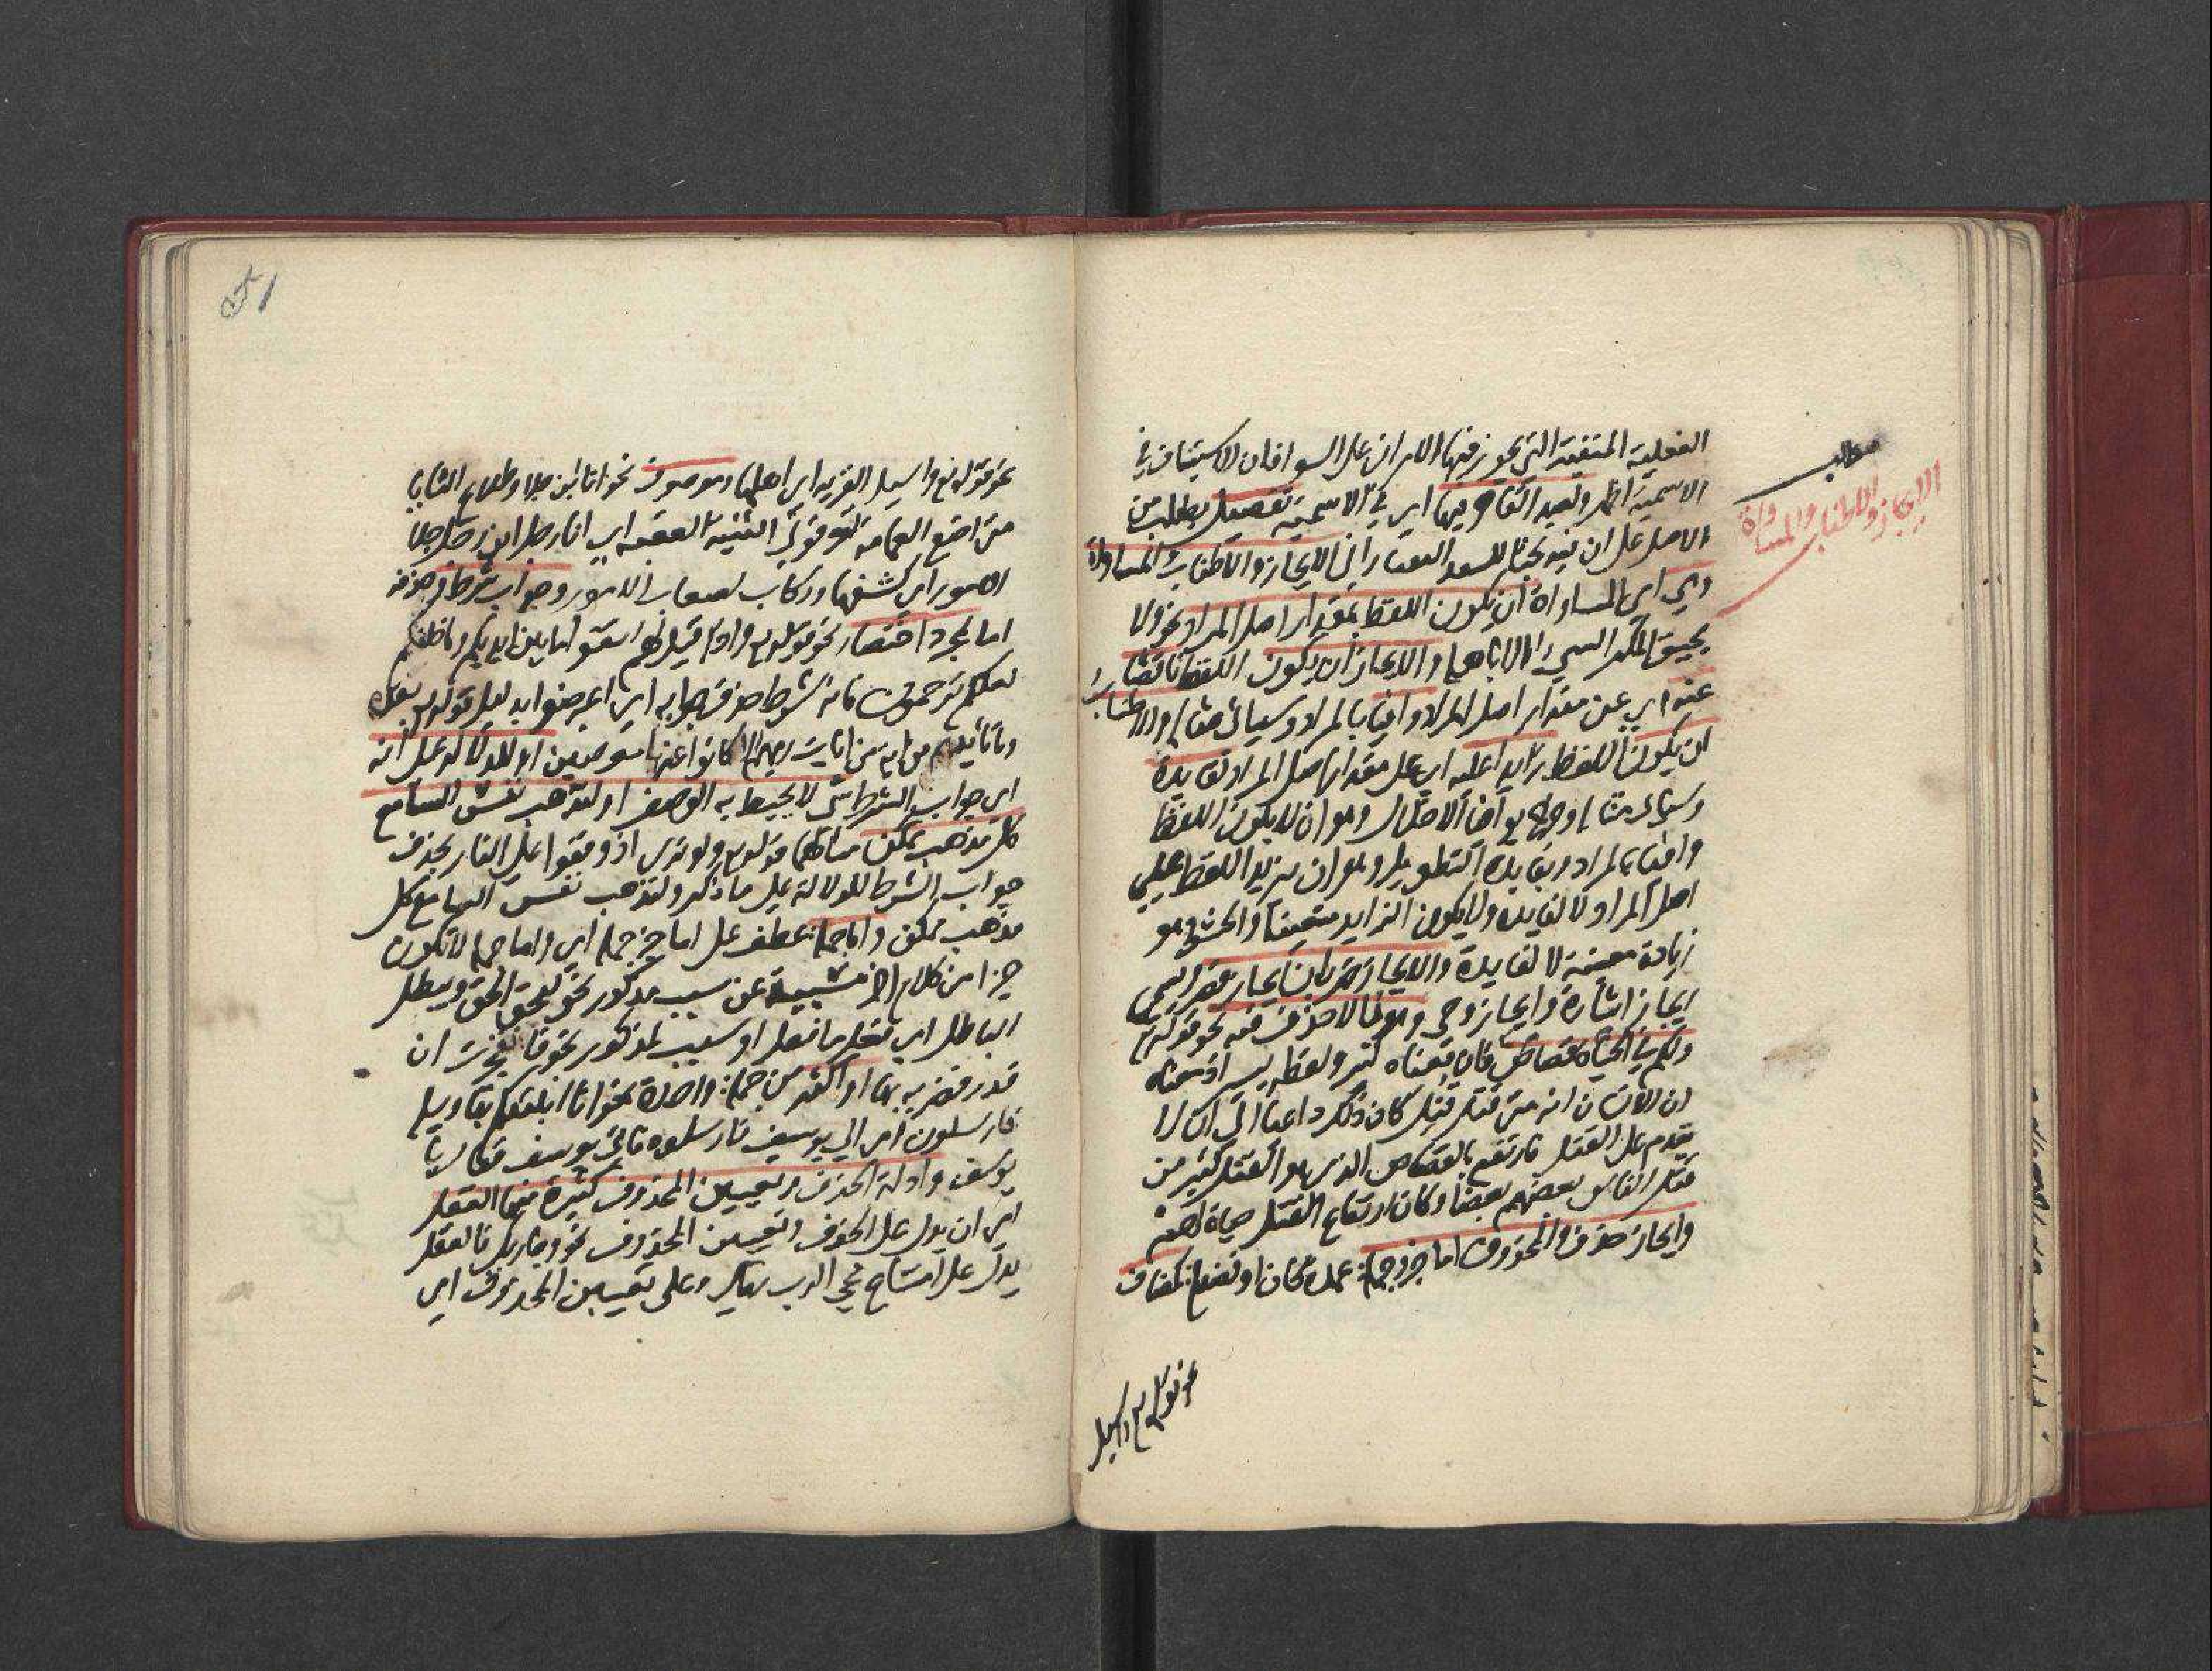 مطلب
الايجاز والاطناب والمساواة
الفعلية المنفية التي يجوز فيها الامران على السوا فان الاستيناف في
الاسمية اظهر ولعبد القاهر فيها اي في الاسمية تفصيل يطلب من
الاصل على ان فيه بحثا للسعد الايجاز والاطناب والمساواة
وهي اي المساواة ان يكون اللفظ بمقدار اصل المراد نحو ولا
يحيق المكر السيء الا باهله والايجاز ان يكون اللفظ ناقصا
عنه اي عن مقدار اصل المراد وافيا بالمراد وسياتي مثاله والاطناب
ان يكون اللفظ زايدا عليه اي على مقدار اصل المراد لفايدة
وسياتي مثاله وخرج بوافيا الاخلال وهو ان لا يكون اللفظ
وافيا بالمراد وبفايدة التطويل وهو ان يزيد اللفظ علي
اصل المراد لا لفايدة ولا يكون الزايد متعينا والحشو وهو
زيادة معينة لا لفايدة والايجاز ضربان ايجاز قصر اسمي
ايجاز اشارة وايجاز وحي وهو ما لا حذف فيه نحو قوله تع
ولكم في الحياة قصاص فان معناه كثير ولفظه يسير اذ معناه
ان الانسان انه متي قتل قتل كان ذلك داعيا الي ان لا
يقدم على القتل فارتفع بالقصاص الذي هو القتل كثير من
قتل الناس بعضهم بعضا وكان ارتفاع القتل حياة لهم
وايجاز حذف والمحذوف اما جزو جملة عمدة كان او فضلة كمضاف
نحو قوله تع واسيل
51
نحو قوله تع واسيل القرية اي اهلها وموصوف نحو انا ابن جلا وطلاع الثنايا
متى اضع العمامة تعرفوني الثنية العقبة اي انا رجل ابن رجل جلا
الامور اي كشفها وركاب لصعاب الامور وجواب شرط وحذفه
اما لمجرد اختصار نحو قوله تع واذا قيل لهم اتقوا ما بين ايديكم وما خلفكم
لعلكم ترحمون فانه شرط حذف جوابه اي اعرضوا بدليل قوله بعده
وما تاتيهم من اية من ايات ربهم الا كانوا عنها معرضين او للدلالة على انه
اي جواب الشرط شي لا يحيط به الوصف او لتذهب نفس السامع
كل مذهب ممكن مثالهما قوله تع ولو ترى اذ وقفوا علي النار بحذف
جواب الشرط للدلالة علي ما ذكر ولتذهب نفس السامع كل
مذهب ممكن واما جملة عطف على اما جزء جملة اي واما جملة لا تكون
جزا من كلام اخر مسببة عن سبب مذكور نحو ليحق الحق ويبطل
الباطل اي فعل ما فعل او سبب لمذكور نحو فانفجرت ان
قدر فضربه بها او اكثر من جملة واحدة نحو انا انبئكم بتاويله
فارسلون اي الي يوسف فارسلوه فاتي يوسف فقال يا
يوسف وادلة الحذف وتعيين المحذوف كثيرة منها العقل
اي ان يدل على الحذف وتعيين المحذوف نحو وجا ربك فالعقل
يدل على امتناع مجي الرب تعالى وعلى تعيين المحذوف اي